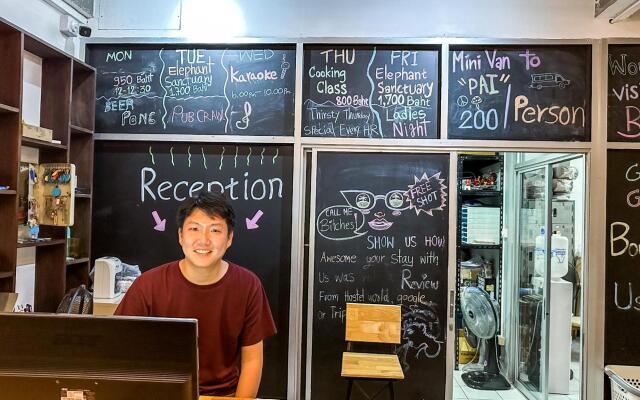 MON
950 Baht
12-12.30
BEER
PONG
TUE
Elephant
Sanctuary
1,700 Baht
PUB CRAWL
WED
Karaoke
6.00pm - 10.00pm
THU
Cooking
Class
800 Baht
Thirsty Thursday
Special Every HR
FRI
Elephant
Sanctuary
1,700 Baht
Ladies
Night
Mini Van To
"PAI"
200/Person
visit
Reception
CALL ME
Bitches!
FREE
SHOT
SHOW US HOW
Awesome your stay with
Us was
Review
From Hostel world, google
or
Us